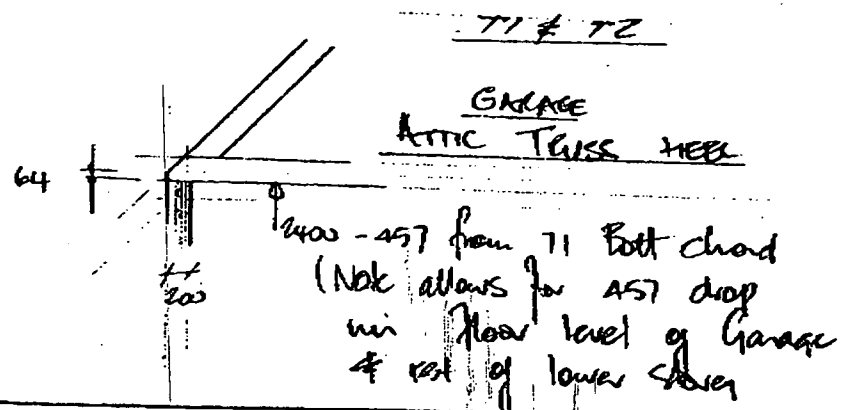 T1 & T2
GARAGE
ATTIC TRUSS HEEL
64
2400 - 457 from T1 Bott chord
(Note allows for 457 drop
in floor level of Garage
& rest of lower storey
200